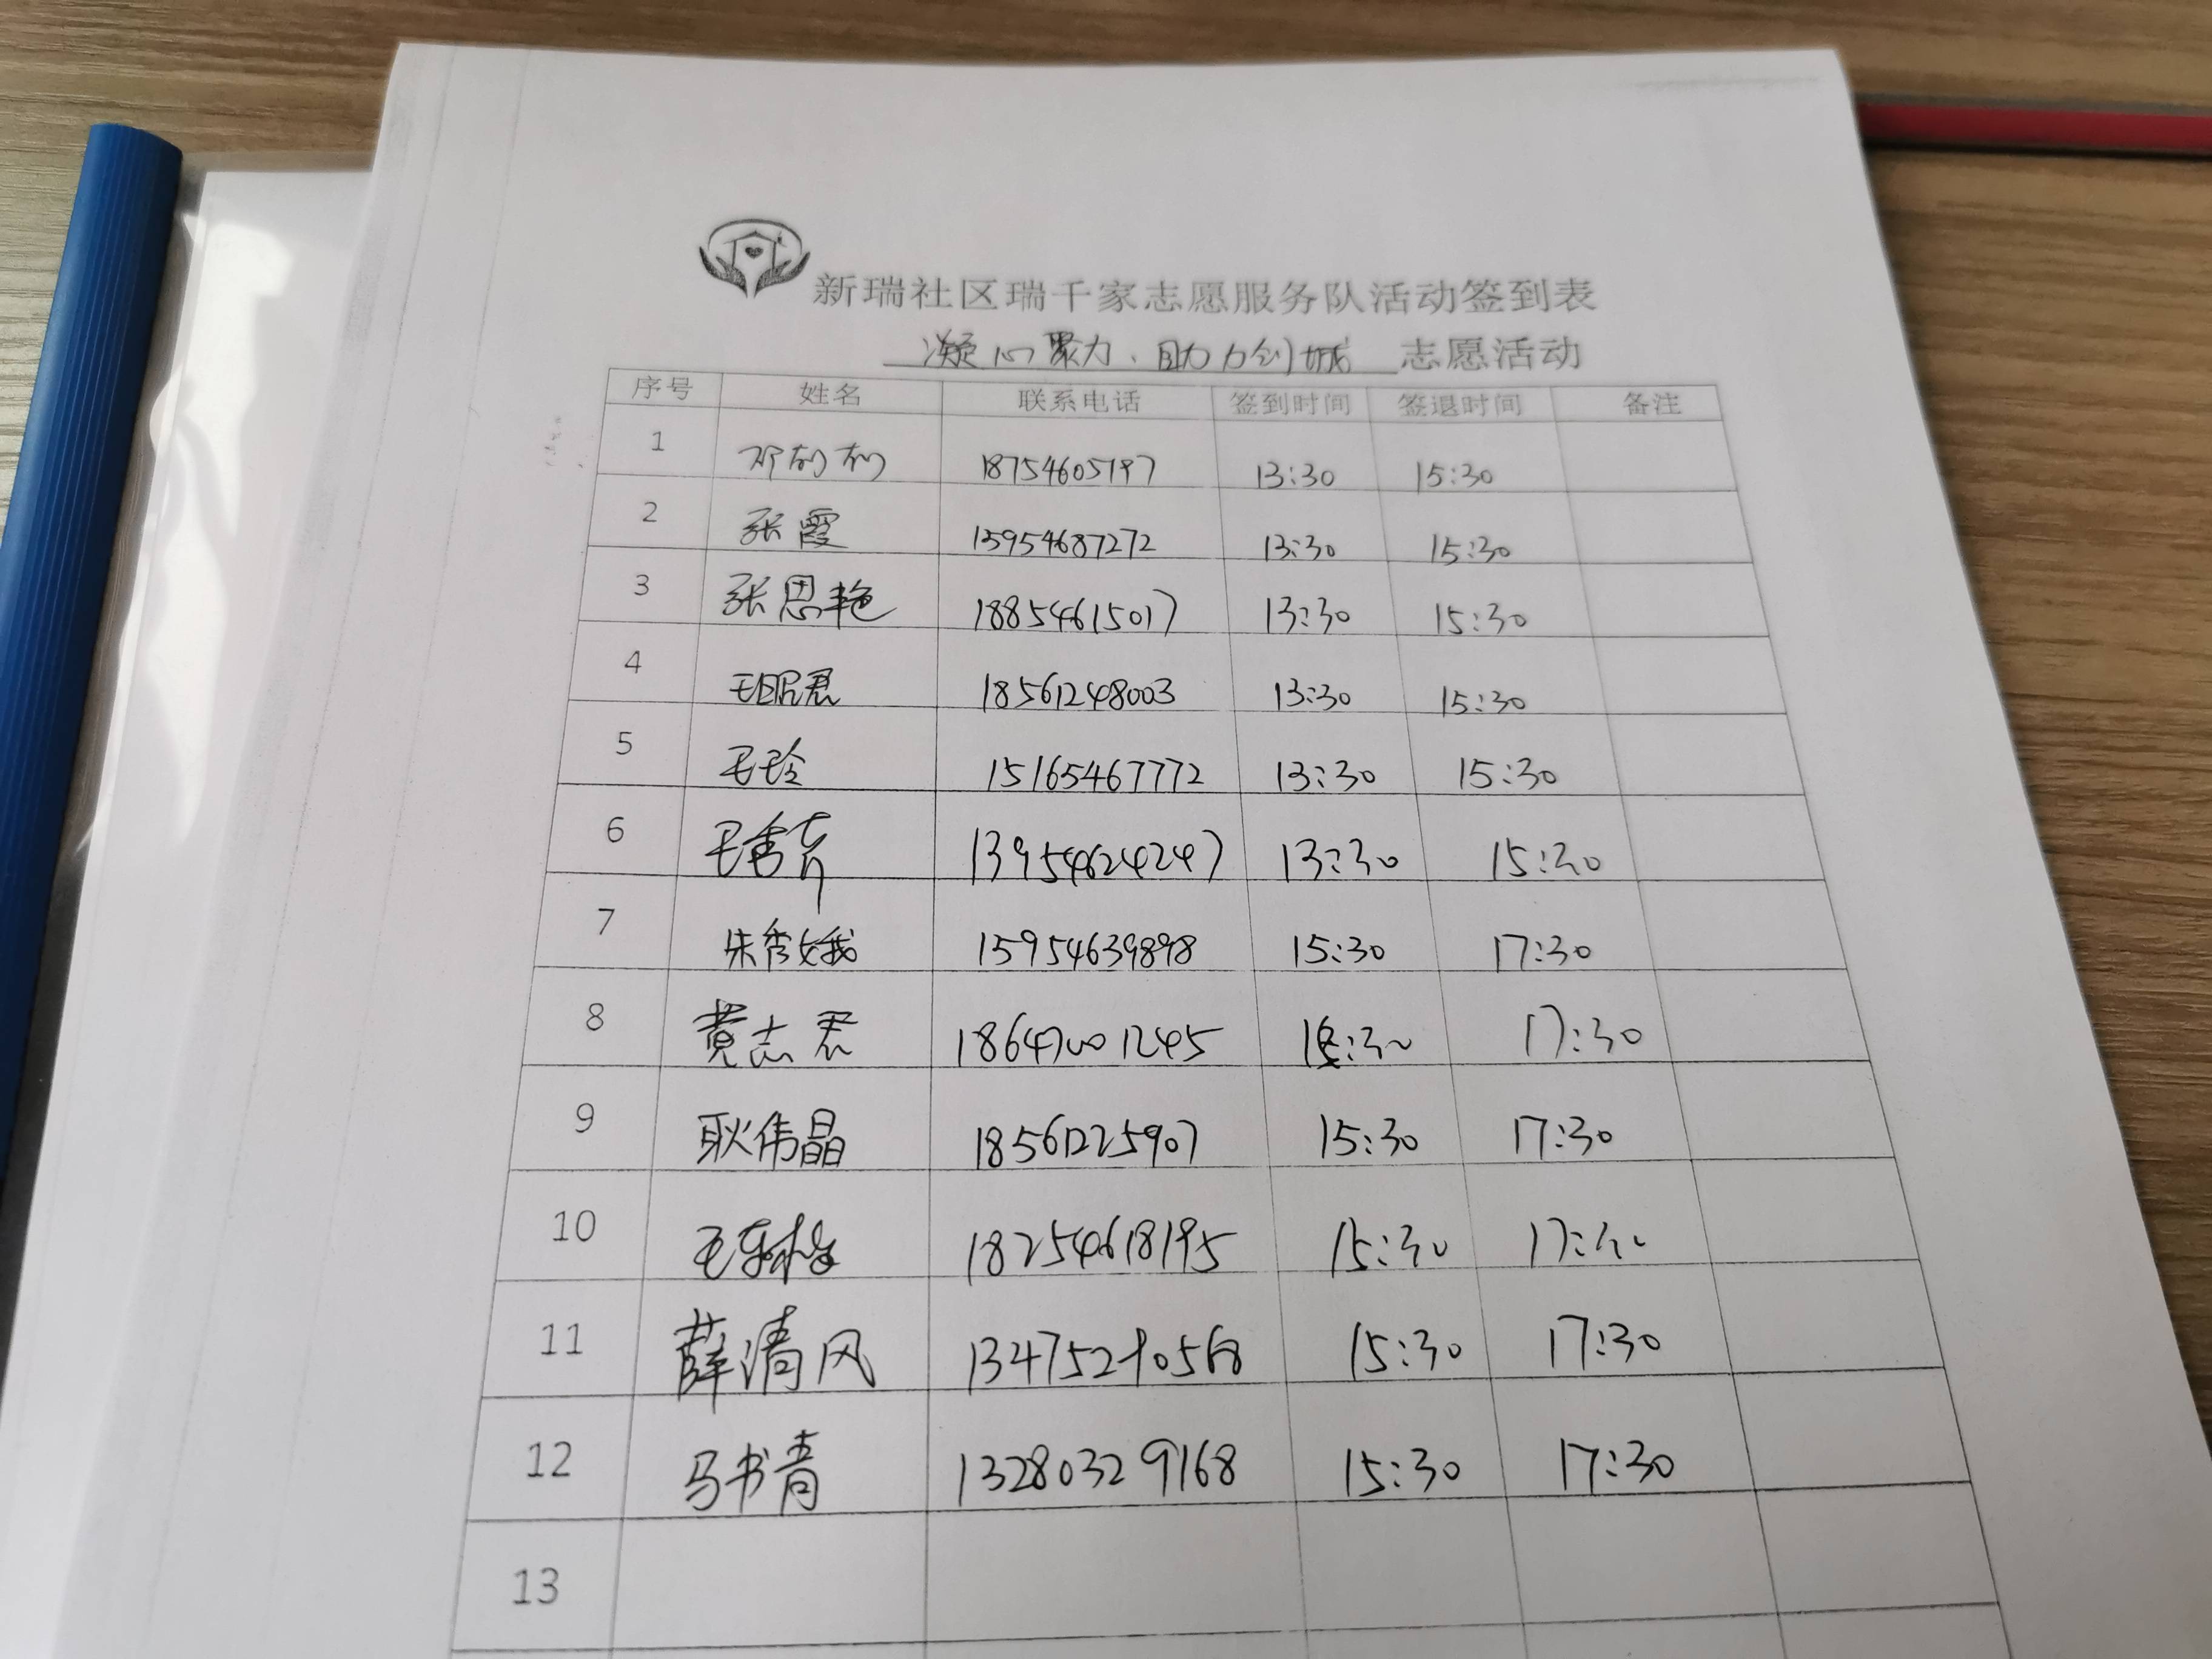 新瑞社区瑞千家志愿服务队活动签到表
凝心聚力、助力创城 志愿活动
序号 姓名 联系电话 签到时间 签退时间 备注
1 18754605197 13:30 15:30
2 张霞 15954687272 13:30 15:30
3 张思艳 18854615017 13:30 15:30
4 18561248003 13:30 15:30
5 王玲 15165467772 13:30 15:30
6 13954624247 13:30 15:30
7 朱秀娥 15954639898 15:30 17:30
8 黄志君 15:30 17:30
9 耿伟晶 18561225907 15:30 17:30
10 18254618195 15:30 17:30
11 薛清风 15:30 17:30
12 马书青 13280329168 15:30 17:30
13